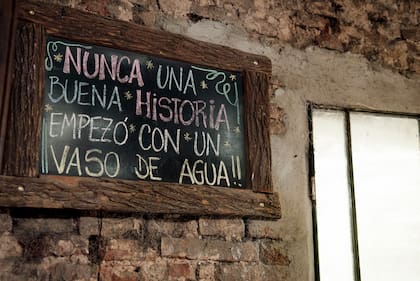 NUNCA UNA
BUENA HISTORIA
EMPEZÓ CON UN
VASO DE AGUA!!